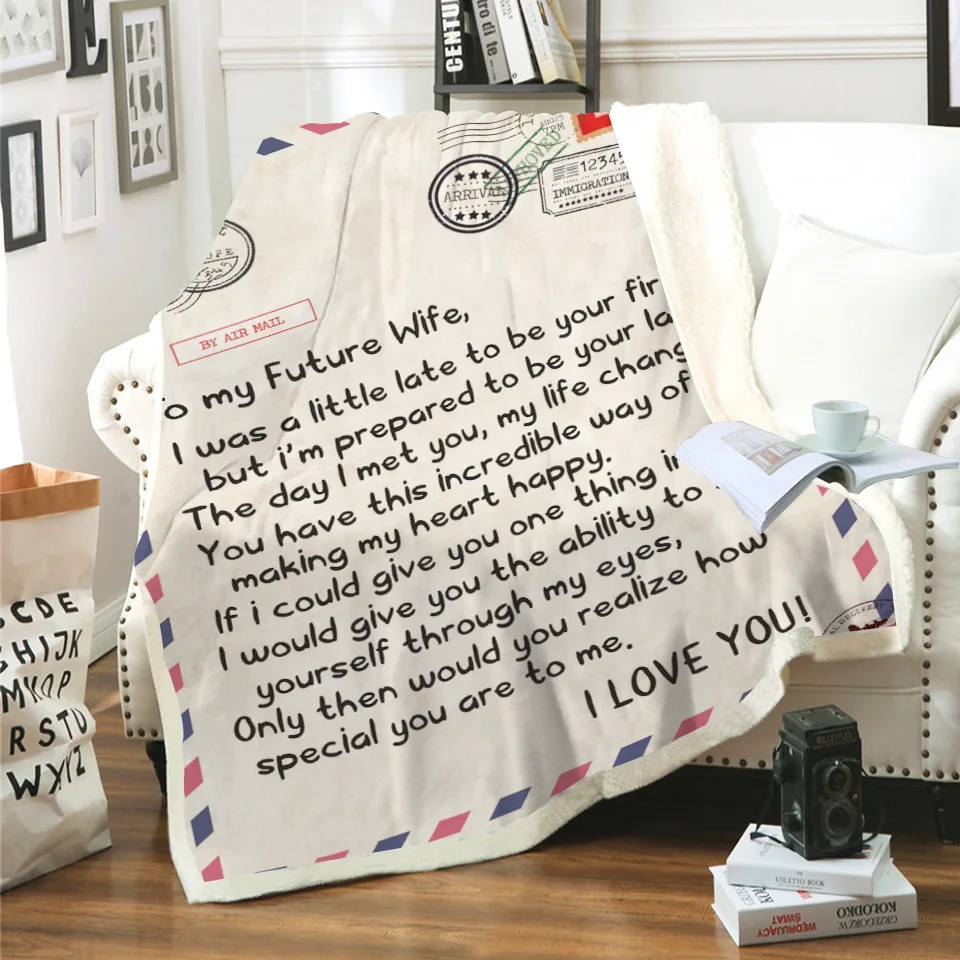 CENTU
ro di te
7PM
SHOWED
ARRIVAL
12345
IMMIGRATION
BY AIR MAIL
o my Future Wife,
I was a little late to be your fir
but i'm prepared to be your la
The day I met you, my life chang
You have this incredible way of
making my heart happy.
If i could give you one thing in
I would give you the ability to
yourself through my eyes,
Only then would you realize how
special you are to me.
I LOVE YOU!
E
CDE
GHIJK
MNOP
RSTU
WXYZ
STILETTO BOOK
GRZEGORZ W.
KOŁODKO
WĘDRUJĄCY
ŚWIAT